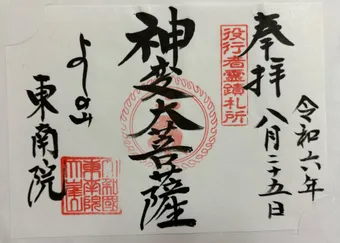 奉拝
役行者霊蹟札所
令和六年
八月二十五日
神変大菩薩
よしの山
東南院